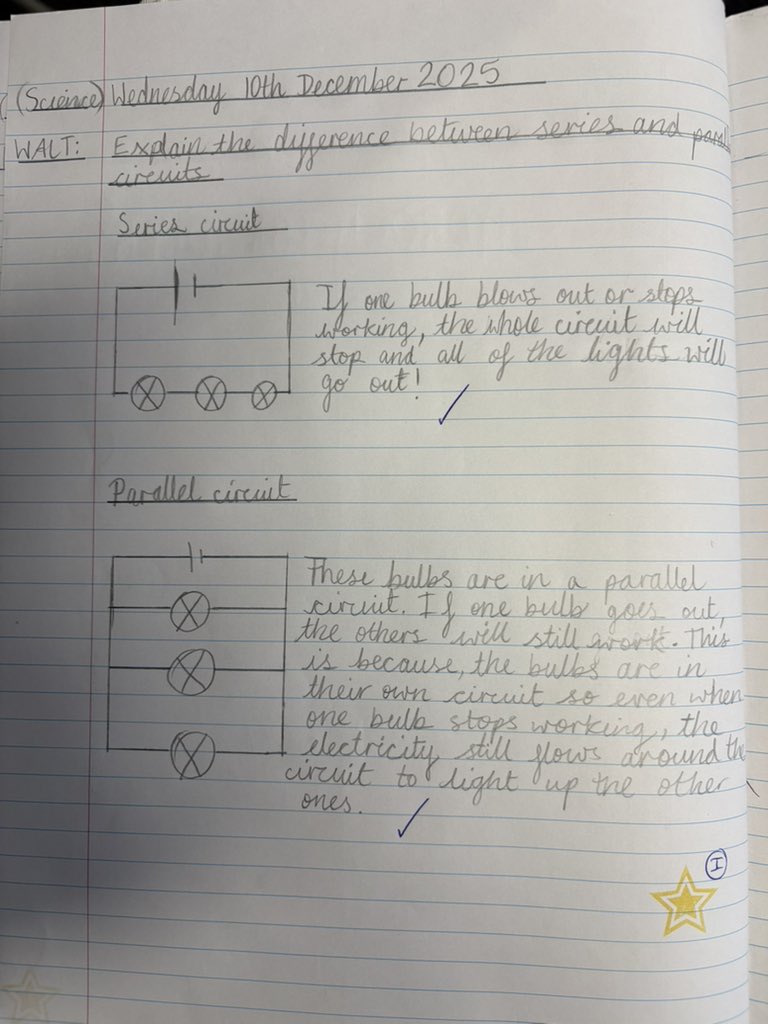 (Science) Wednesday 10th December 2025
WALT: Explain the difference between series and parall
circuits
Series circuit
If one bulb blows out or stops
working, the whole circuit will
stop and all of the lights will
go out!
Parallel circuit
These bulbs are in a parallel
circuit. If one bulb goes out,
the others will still work. This
is because, the bulbs are in
their own circuit so even when
one bulb stops working, the
electricity still flows around the
circuit to light up the other
ones.
I